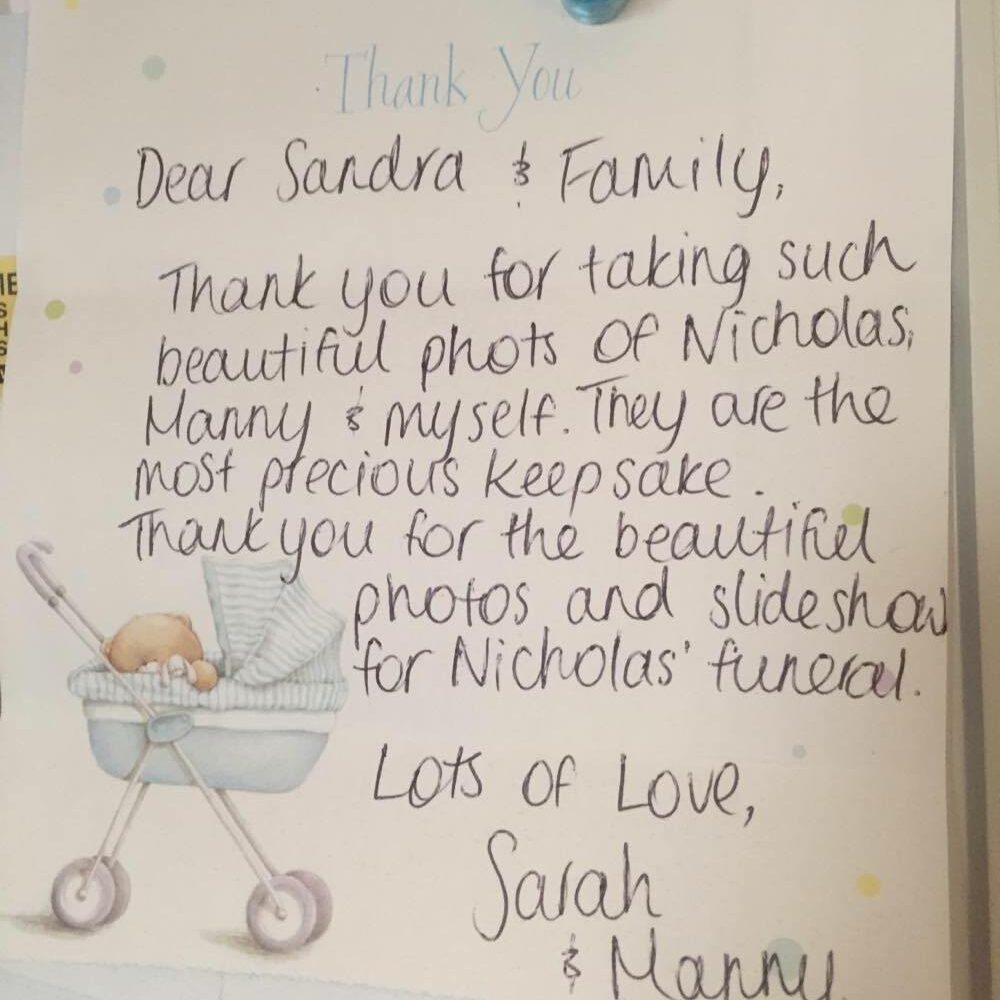 Thank You
Dear Sandra & Family,
Thank you for taking such
beautiful phots of Nicholas,
Manny & myself. They are the
most precious keepsake.
Thank you for the beautiful
photos and slideshow
for Nicholas' funeral.
Lots of Love,
Sarah
& Manny